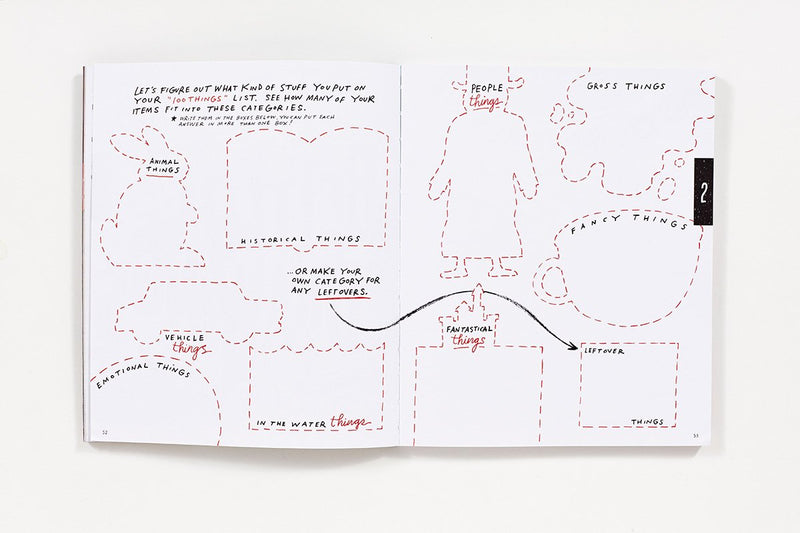 LET'S FIGURE OUT WHAT KIND OF STUFF YOU PUT ON
YOUR "100 THINGS" LIST. SEE HOW MANY OF YOUR
ITEMS FIT INTO THESE CATEGORIES.
★ WRITE THEM IN THE BOXES BELOW. YOU CAN PUT EACH
ANSWER IN MORE THAN ONE BOX!
ANIMAL
THINGS
HISTORICAL THINGS
...OR MAKE YOUR
OWN CATEGORY FOR
ANY LEFTOVERS.
VEHICLE
things
EMOTIONAL THINGS
IN THE WATER things
52
PEOPLE
things
GROSS THINGS
2
FANCY THINGS
FANTASTICAL
things
LEFTOVER
THINGS
53